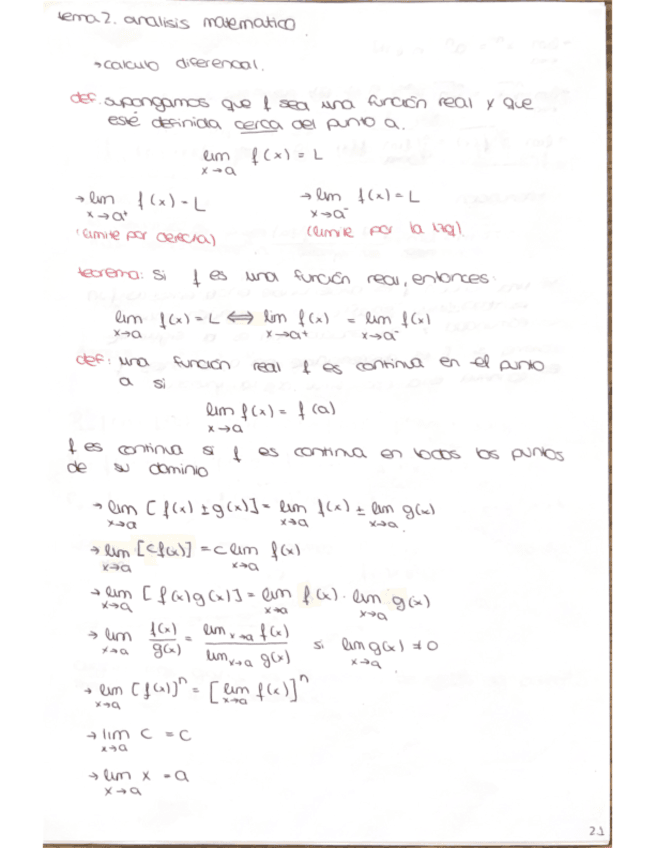 tema 2. analisis matematico
→calculo diferencial.
def: supongamos que f sea una función real y que
esté definida cerca del punto a.
lim x→a f(x) = L
→lim x→a⁺ f(x) = L →lim x→a⁻ f(x) = L
(limite por derecha) (limite por la izq).
teorema: Si f es una función real, entonces:
lim x→a f(x) = L ⟺ lim x→a⁺ f(x) = lim x→a⁻ f(x)
def: una función real f es continua en el punto
a si
lim x→a f(x) = f(a)
f es continua si f es continua en todos los puntos
de su dominio
→lim x→a [f(x) ± g(x)] = lim x→a f(x) ± lim x→a g(x)
→lim x→a [cf(x)] = c lim x→a f(x)
→lim x→a [f(x)g(x)] = lim x→a f(x) · lim x→a g(x)
→lim x→a f(x)/g(x) = lim x→a f(x) / lim x→a g(x) si lim x→a g(x) ≠ 0
→lim x→a [f(x)]ⁿ = [lim x→a f(x)]ⁿ
→lim x→a c = c
→lim x→a x = a
2.1